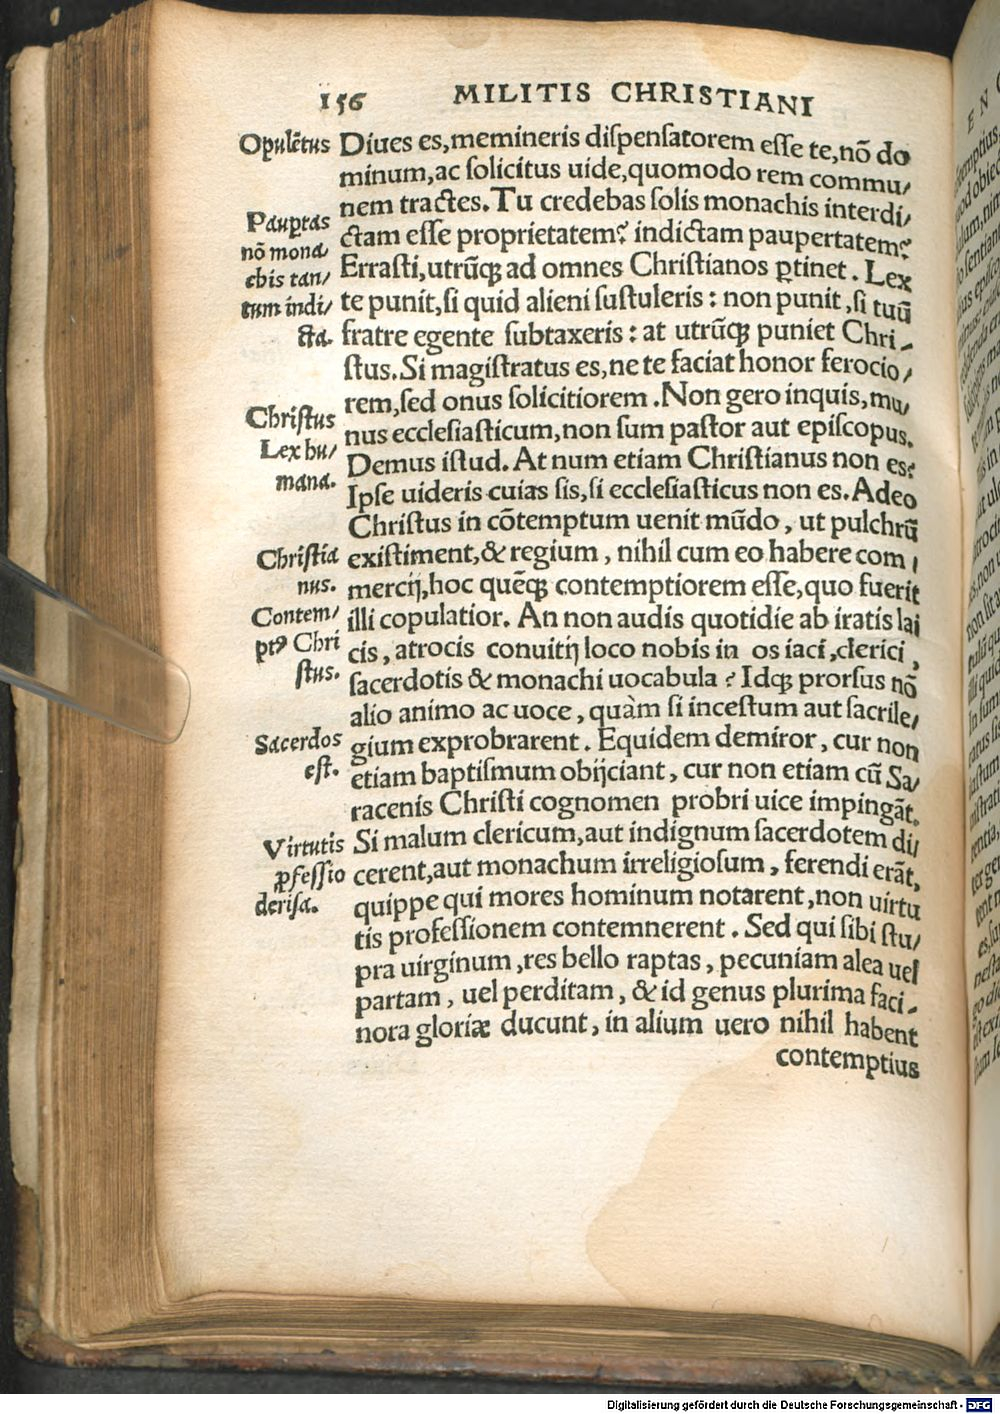 156 MILITIS CHRISTIANI
Opulẽtus
Diues es, memineris diſpenſatorem eſſe te, nõ do
minum, ac ſolicitus uide, quomodo rem commu/
nem tractes. Tu credebas ſolis monachis interdi/
ctam eſſe proprietatem? indictam paupertatem?
Erraſti, utrũqꝫ ad omnes Chriſtianos ꝑtinet. Lex
te punit, ſi quid alieni ſuſtuleris: non punit, ſi tuũ
fratre egente ſubtaxeris: at utrũqꝫ puniet Chri-
ſtus. Si magiſtratus es, ne te faciat honor ferocio/
rem, ſed onus ſolicitiorem. Non gero inquis, mu/
nus eccleſiaſticum, non ſum paſtor aut epiſcopus.
Demus iſtud. At num etiam Chriſtianus non es?
Ipſe uideris cuias ſis, ſi eccleſiaſticus non es. Adeo
Chriſtus in cõtemptum uenit mũdo, ut pulchrũ
exiſtiment, & regium, nihil cum eo habere com/
mercij, hoc quẽqꝫ contemptiorem eſſe, quo fuerit
illi copulatior. An non audis quotidie ab iratis lai
cis, atrocis conuitij loco nobis in os iaci, clerici,
ſacerdotis & monachi uocabula? Idqꝫ prorſus nõ
alio animo ac uoce, quàm ſi inceſtum aut ſacrile/
gium exprobrarent. Equidem demiror, cur non
etiam baptiſmum obijciant, cur non etiam cũ Sa/
racenis Chriſti cognomen probri uice impingãt.
Si malum clericum, aut indignum ſacerdotem di/
cerent, aut monachum irreligioſum, ferendi erãt,
quippe qui mores hominum notarent, non uirtu
tis profeſſionem contemnerent. Sed qui ſibi ſtu/
pra uirginum, res bello raptas, pecuniam alea uel
partam, uel perditam, & id genus plurima faci-
nora gloriæ ducunt, in alium uero nihil habent
contemptius
Pauꝑtas
nõ mona/
chis tan/
tum indi/
cta.
Chriſtus
Lex hu/
mana.
Chriſtia
nus.
Contem/
ptꝰ Chri
ſtus.
Sacerdos
eſt.
Virtutis
ꝓfeſſio
deriſa.
Digitalisierung gefördert durch die Deutsche Forschungsgemeinschaft - DFG